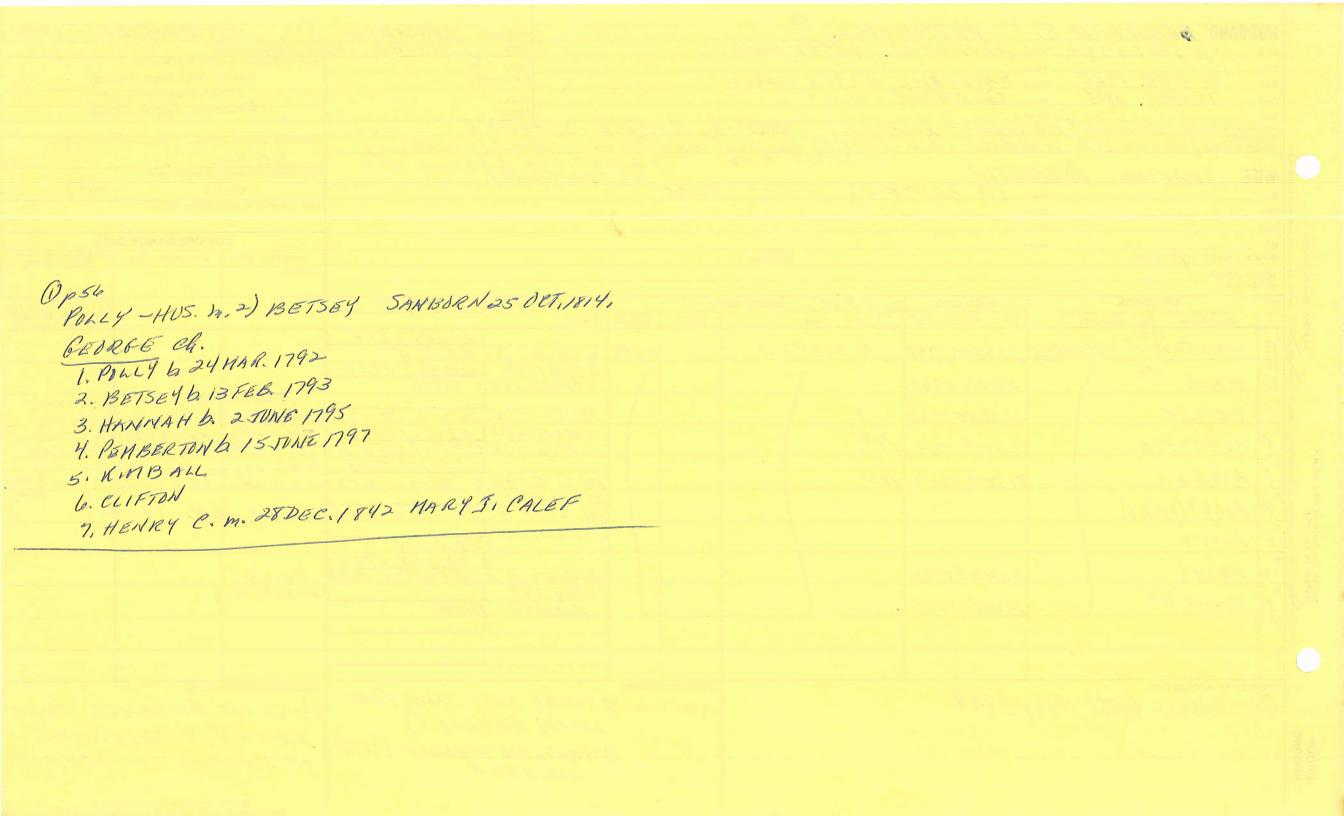 ① p56
POLLY - HUS. m. 2) BETSEY SANBORN 25 OCT. 1814.
GEORGE ch.
1. POLLY b 24 MAR. 1792
2. BETSEY b. 13 FEB. 1793
3. HANNAH b. 2 JUNE 1795
4. PEMBERTON b 15 JUNE 1797
5. KIMBALL
6. CLIFTON
7. HENRY C. m. 28 DEC. 1842 MARY J. CALEF